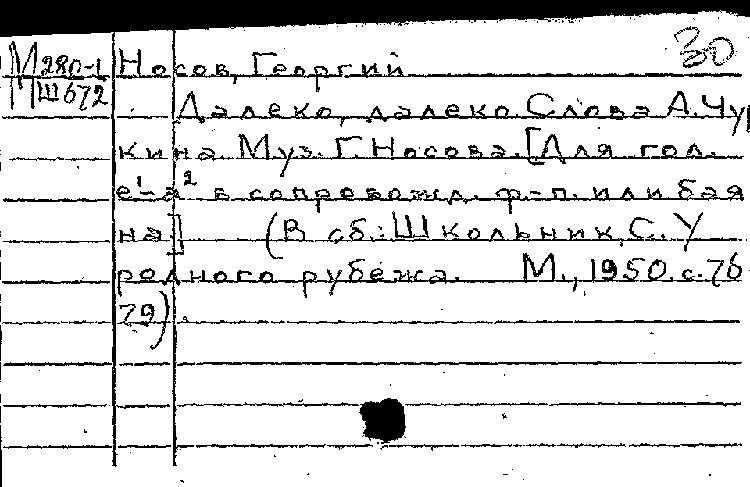 30
М280-1 Носов, Георгий
Ш672 Далеко, далеко Слова А. Чур
кина. Муз. Г. Носова. [Для гол.
е¹-а² в сопровожд. ф.-п. или бая
на] (В сб.: Школьник, С. У
родного рубежа. М., 1950. с. 76
79).